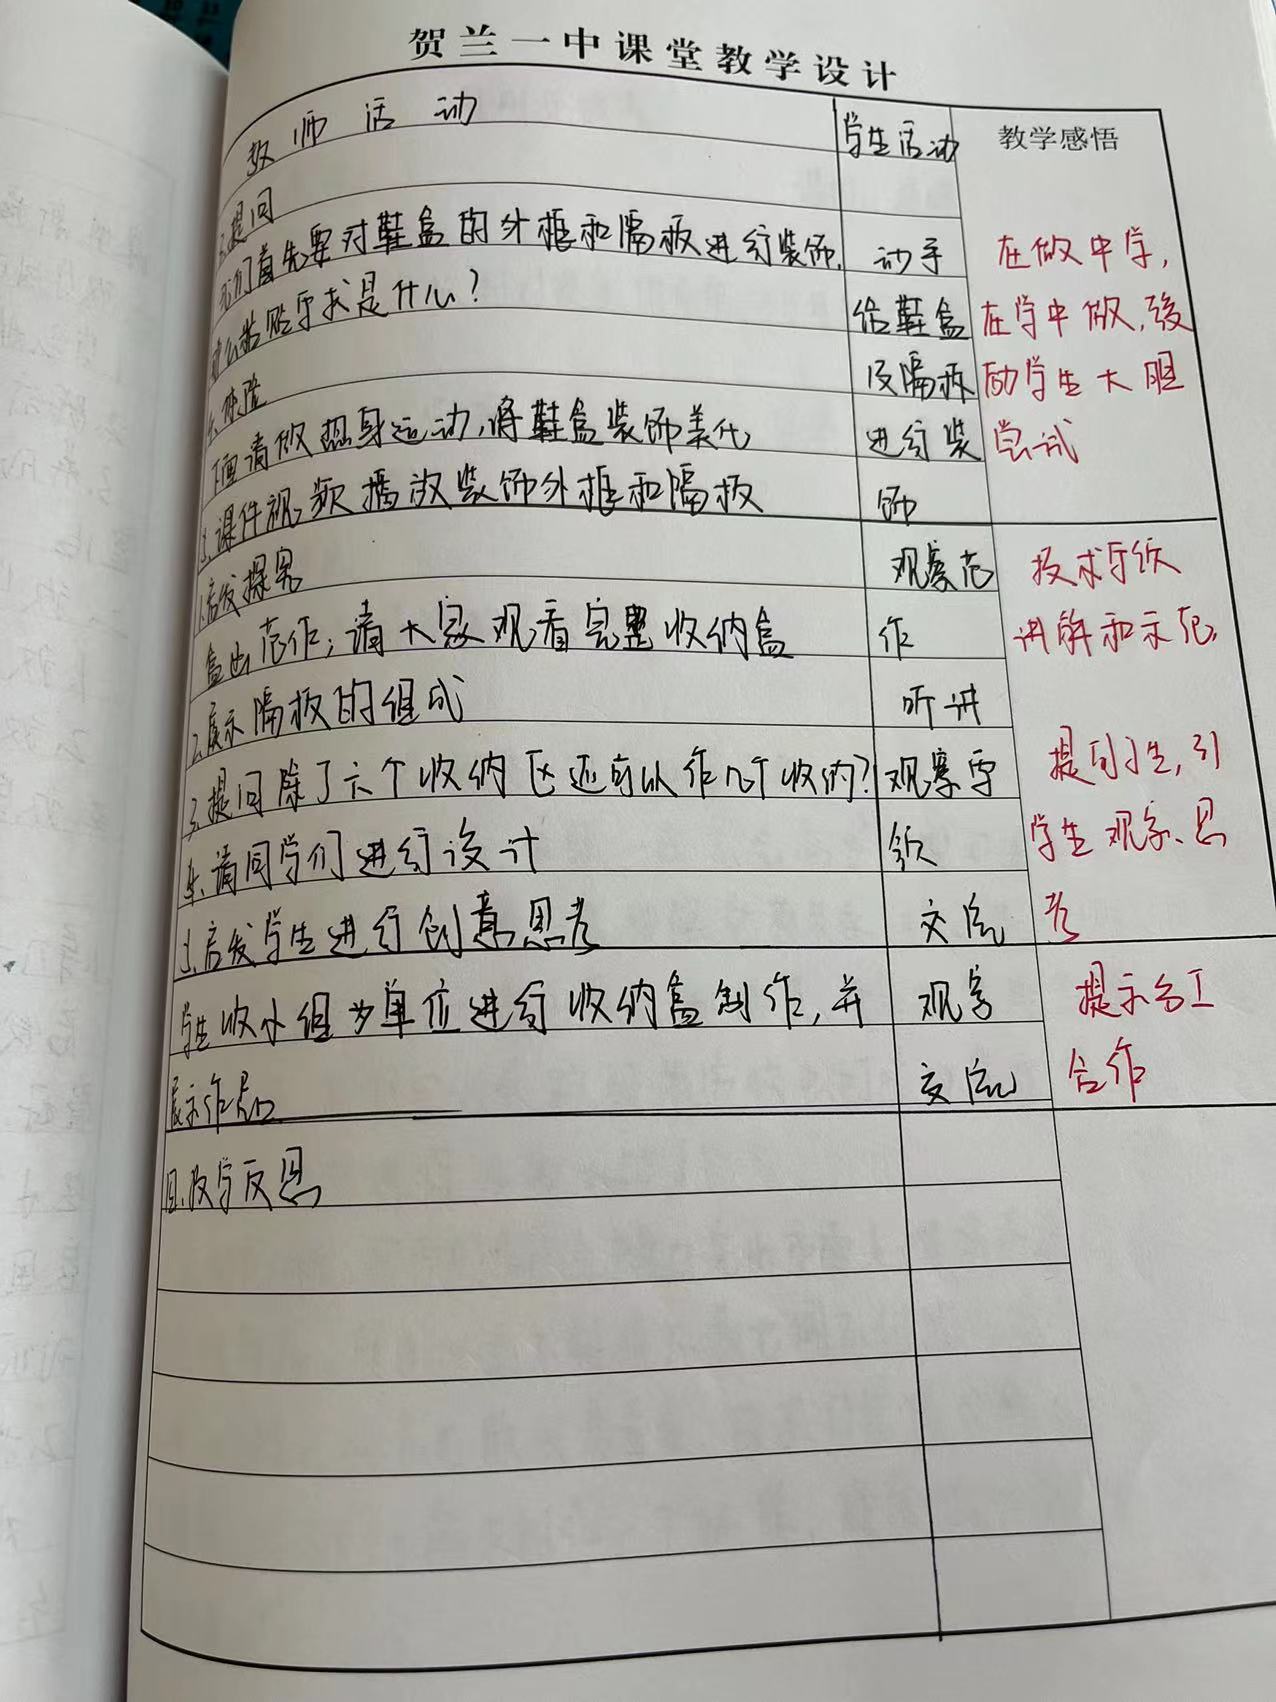 贺兰一中课堂教学设计
教师活动 学生活动 教学感悟
3.提问
我们首先要对鞋盒的外框和隔板进行装饰, 动手 在做中学,
那么粘贴要求是什么? 给鞋盒 在学中做,
4.体验 及隔板 励学生大胆
下面请做热身运动,将鞋盒装饰美化 进行装 尝试
5.课件视频播放装饰外框和隔板 饰
1.启发探究 观察范 技术
盒出范作;请大家观看完整收纳盒 作 讲解和示范
2.展示隔板的组成 听讲
3.提问除了六个收纳区还可以作几个收纳? 观察 提问学生,引
4.请同学们进行设计 学生观察、思
5.启发学生进行创意思考 交流 考
学生以小组为单位进行收纳盒制作,并 观察 提示分工
展示作品 交流 合作
四.教学反思